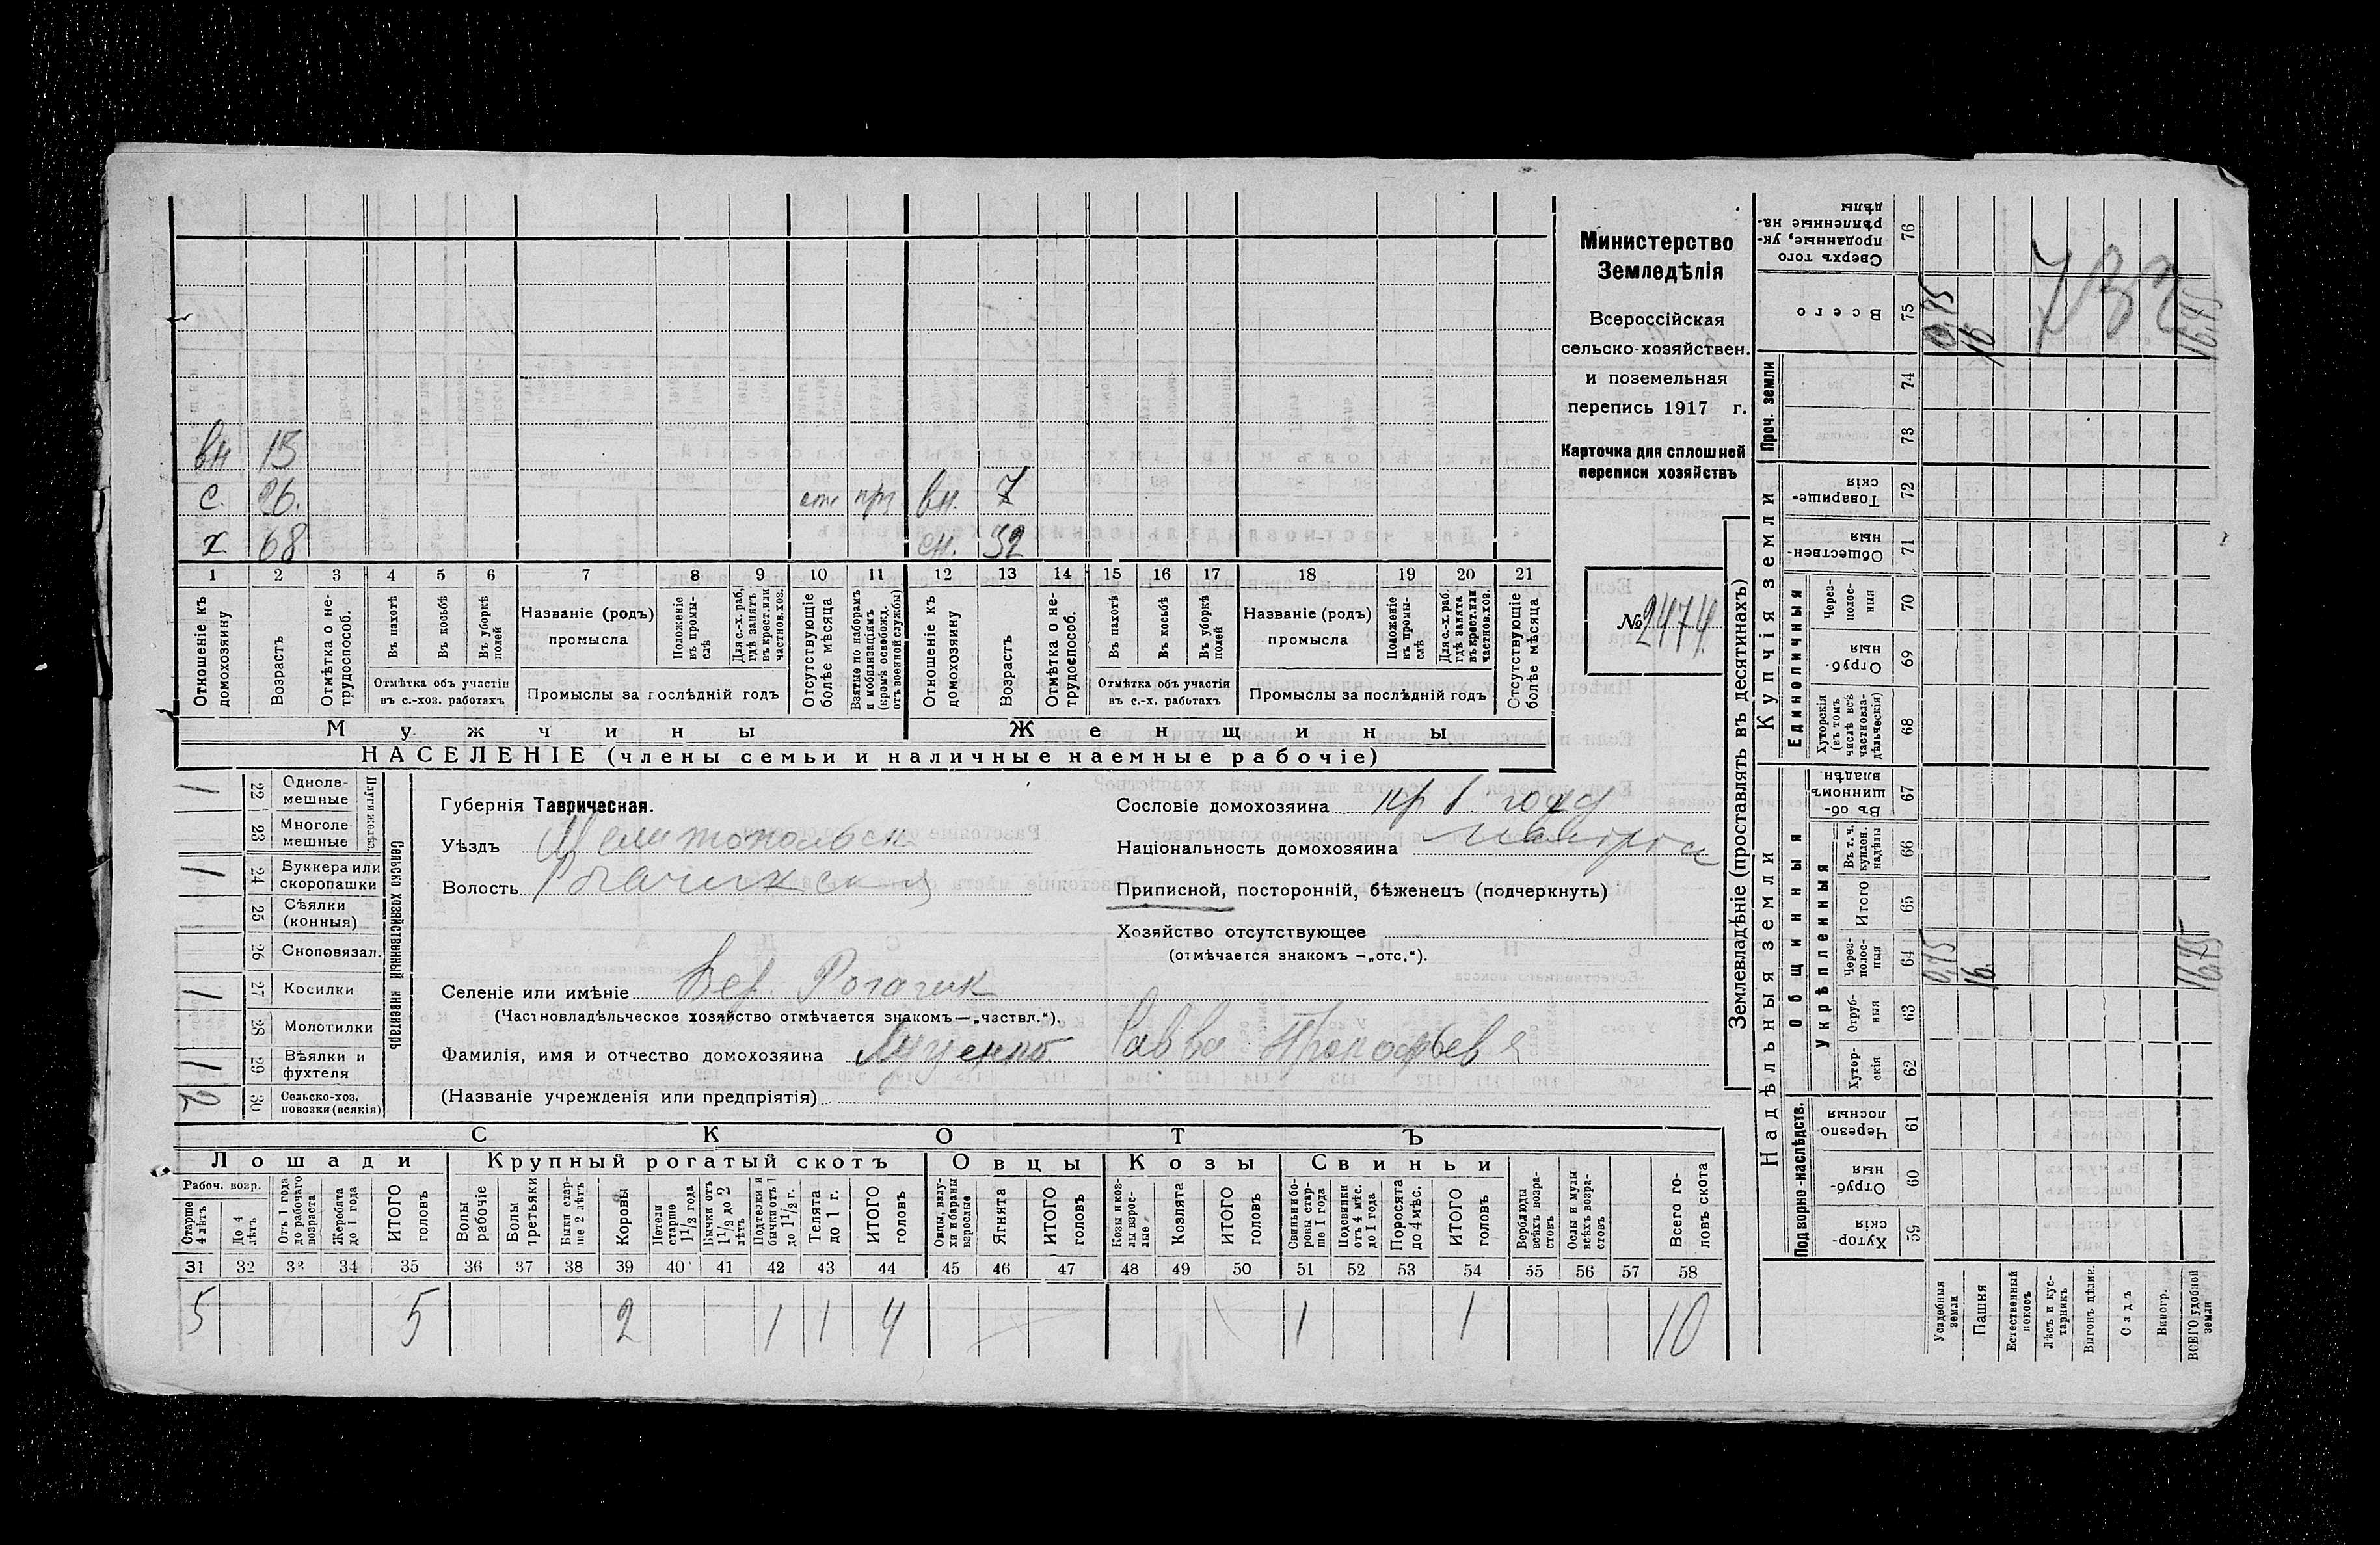 Министерство
Земледѣлія
Всероссійская
сельско-хозяйствен.
и поземельная
перепись 1917 г.
Карточка для сплошной
переписи хозяйствъ
№ 2474
вн 15
с. 26. отс прз вн. 7
х 68 сн. 32
1 2 3 4 5 6 7 8 9 10 11 12 13 14 15 16 17 18 19 20 21
Отношеніе къ домохозяину
Возрастъ
Отмѣтка о не-трудоспособ.
Въ пахотѣ
Въ косьбѣ
Въ уборкѣ полей
Отмѣтка объ участіи въ с.-хоз. работахъ
Названіе (родъ) промысла
Положеніе въ промы-слѣ
Для с.-х. раб. гдѣ занятъ въ крест. или частнов. хоз.
Промыслы за послѣдній годъ
Отсутствующіе болѣе мѣсяца
Взятые по наборамъ и мобилизаціямъ (кромѣ освобожд. отъ военной службы)
Отношеніе къ домохозяину
Возрастъ
Отмѣтка о не-трудоспособ.
Въ пахотѣ
Въ косьбѣ
Въ уборкѣ полей
Отмѣтка объ участіи въ с.-х. работахъ
Названіе (родъ) промысла
Положеніе въ промы-слѣ
Для с.-х. раб. гдѣ занята въ крест. или частнов. хоз.
Промыслы за послѣдній годъ
Отсутствующіе болѣе мѣсяца
Мужчины Женщины
НАСЕЛЕНІЕ (члены семьи и наличные наемные рабочіе)
Сельско хозяйственный инвентарь
Плуги желѣз.
1 22 Одноле-мешные
23 Многоле-мешные
1 24 Буккера или скоропашки
25 Сѣялки (конныя)
26 Сноповязал.
1 27 Косилки
28 Молотилки
1 29 Вѣялки и фухтеля
2 30 Сельско-хоз. повозки (всякія)
Губернія Таврическая.
Уѣздъ Мелитопольск
Волость Рогачикская
Селеніе или имѣніе Вер. Рогачик
(Частновладѣльческое хозяйство отмѣчается знакомъ—„чзствл.“).
Фамилія, имя и отчество домохозяина Луценко Савва Прокофьевъ
(Названіе учрежденія или предпріятія)
Сословіе домохозяина
Національность домохозяина
Приписной, посторонній, бѣженецъ (подчеркнуть)
Хозяйство отсутствующее
(отмѣчается знакомъ —„отс.“).
СКОТЪ
Лошади Крупный рогатый скотъ Овцы Козы Свиньи
Рабоч. возр.
Старше 4 лѣтъ
До 4 лѣтъ
Отъ 1 года до рабочаго возраста
Жеребята до 1 года
ИТОГО головъ
Волы рабочіе
Волы третьяки
Быки стар-ше 2 лѣтъ
Коровы
Нетели старше 1½ года
Бычки отъ 1½ до 2 лѣтъ
Подтелки и бычки отъ 1 до 1½ г.
Телята до 1 г.
ИТОГО головъ
Овцы, валу-хи и бараны взрослые
Ягнята
ИТОГО головъ
Козы и коз-лы взрос-лые
Козлята
ИТОГО головъ
Свиньи и бо-ровы стар-ше 1 года
Подсвинки отъ 4 мѣс. до 1 года
Поросята до 4 мѣс.
ИТОГО головъ
Верблюды всѣхъ возра-стовъ
Ослы и мулы всѣхъ возра-стовъ
Всего го-ловъ скота
31 32 33 34 35 36 37 38 39 40 41 42 43 44 45 46 47 48 49 50 51 52 53 54 55 56 57 58
5 5 2 1 1 4 1 1 10
Землевладѣніе (проставлять въ десятинахъ)
Купчія земли
Надѣльныя земли
Проч. земли
Единоличныя
Общинныя
Укрѣпленныя
Подворно-наслѣдств.
Сверхъ того проданные, ук-рѣпленные на-дѣлы 76
Всего 75 0,75 16 16,75
74
73
Товарище-скія 72
Обществен-ныя 71
Через-полос-ныя 70
Отруб-ныя 69
Хуторскія (въ томъ числѣ всѣ частновла-дѣльческія) 68
Въ об-щинномъ владѣн. 67
Въ т. ч. куплен. надѣлы 66
Итого 65
Через-полос-ныя 64 0,75 16. 16,75
Отруб-ныя 63
Хутор-скія 62
Черезпо-лосныя 61
Отруб-ныя 60
Хутор-скія 59
Усадебныя земли
Пашня
Естественный покосъ
Лѣсъ и кус-тарникъ
Выгонъ дѣлин.
Садъ
Виногр.
ВСЕГО удобной земли
732